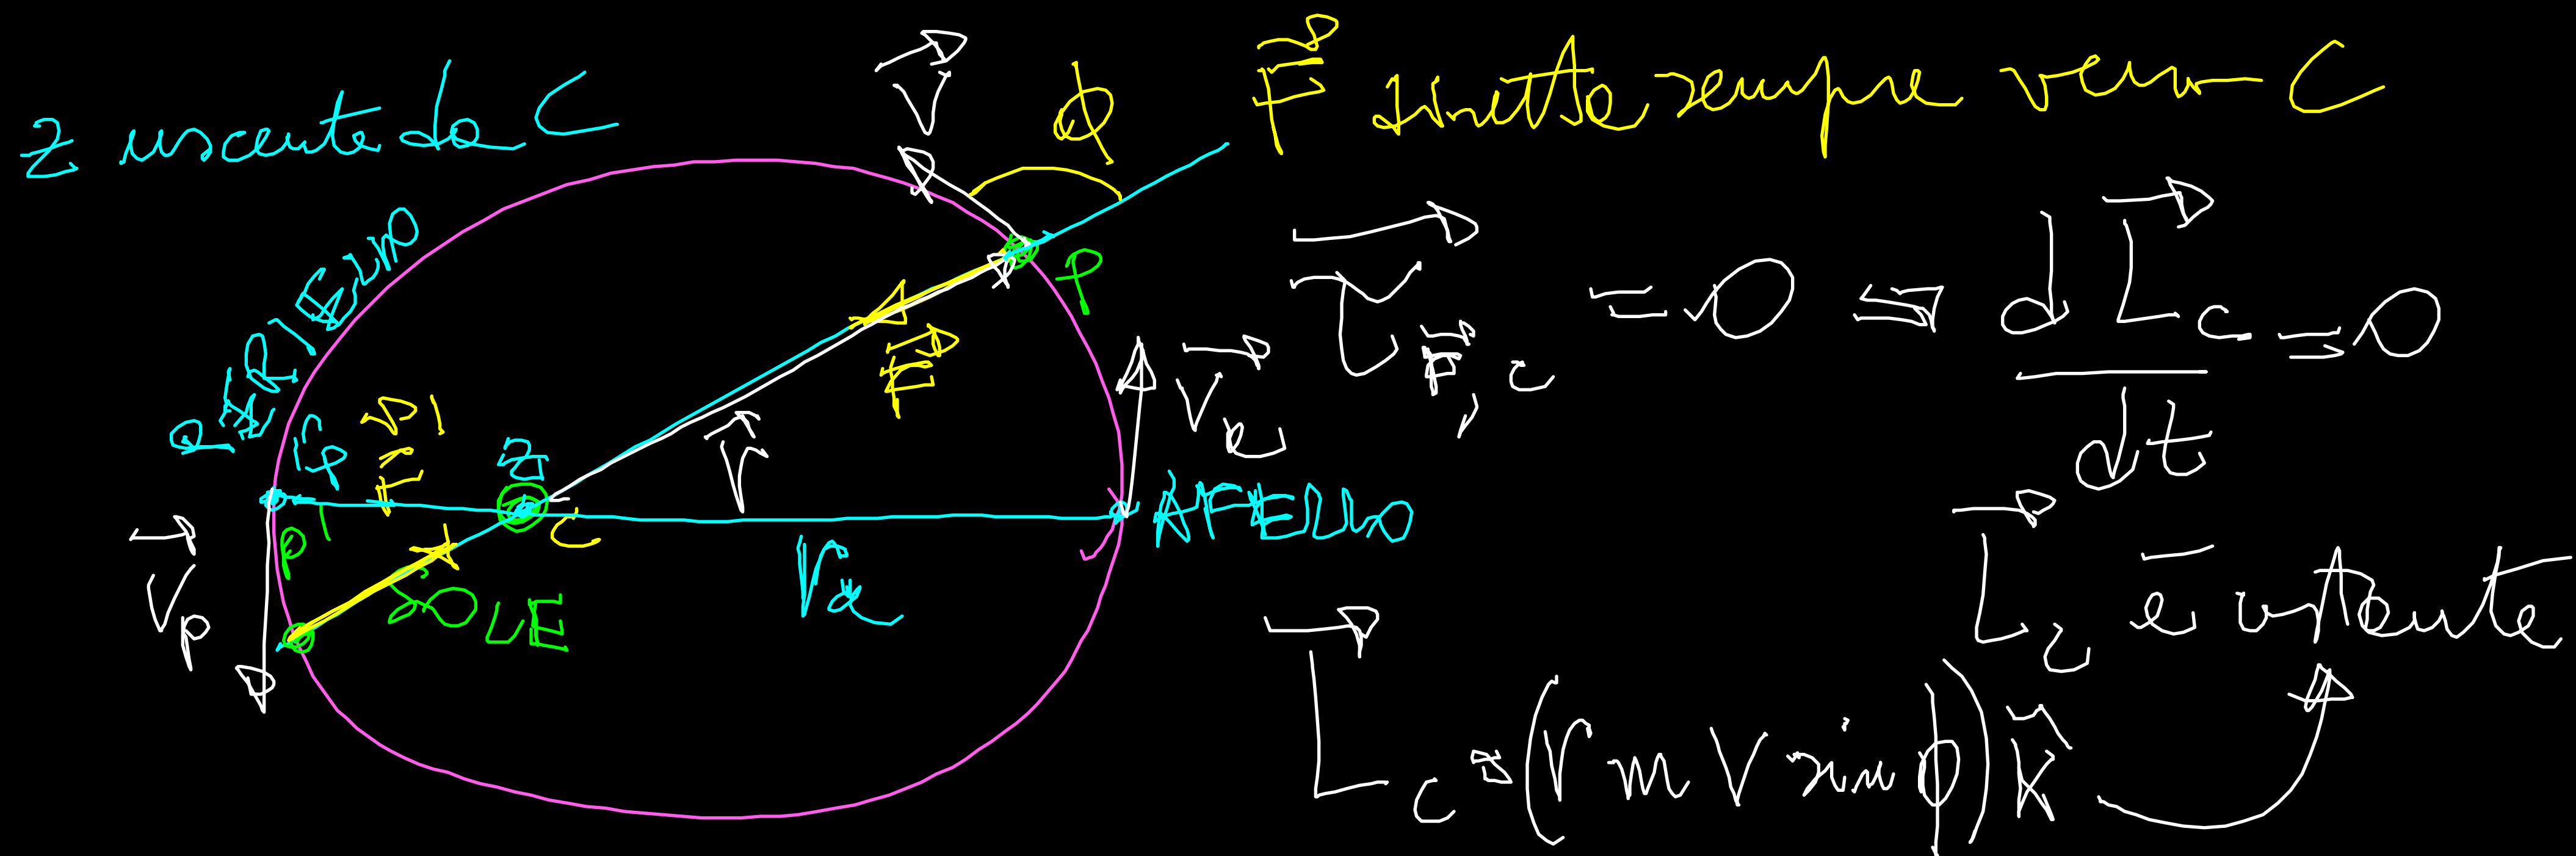 z uscente da C
V⃗
ϕ
F⃗ diretta sempre verso C
PERIELIO
P
τ⃗ F⃗, C = 0 ⇒ dL⃗c/dt = 0
F⃗
V⃗a
rp
F⃗
z
r⃗
C
AFELIO
P'
V⃗p
SOLE
ra
L⃗c è costante
L⃗c = (r m V sin ϕ) k̂